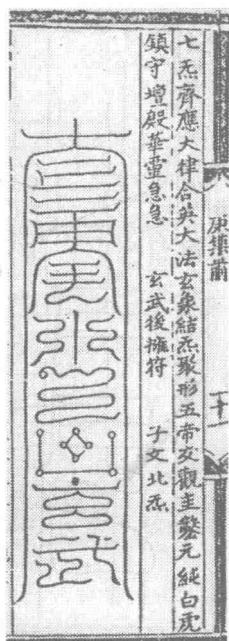 庚集前
十一
七炁齊應大律合英大法玄象結炁聚形五帝交觀主鑒元純白虎
鎮守壇殿華靈急急
玄武後擁符
子文北炁